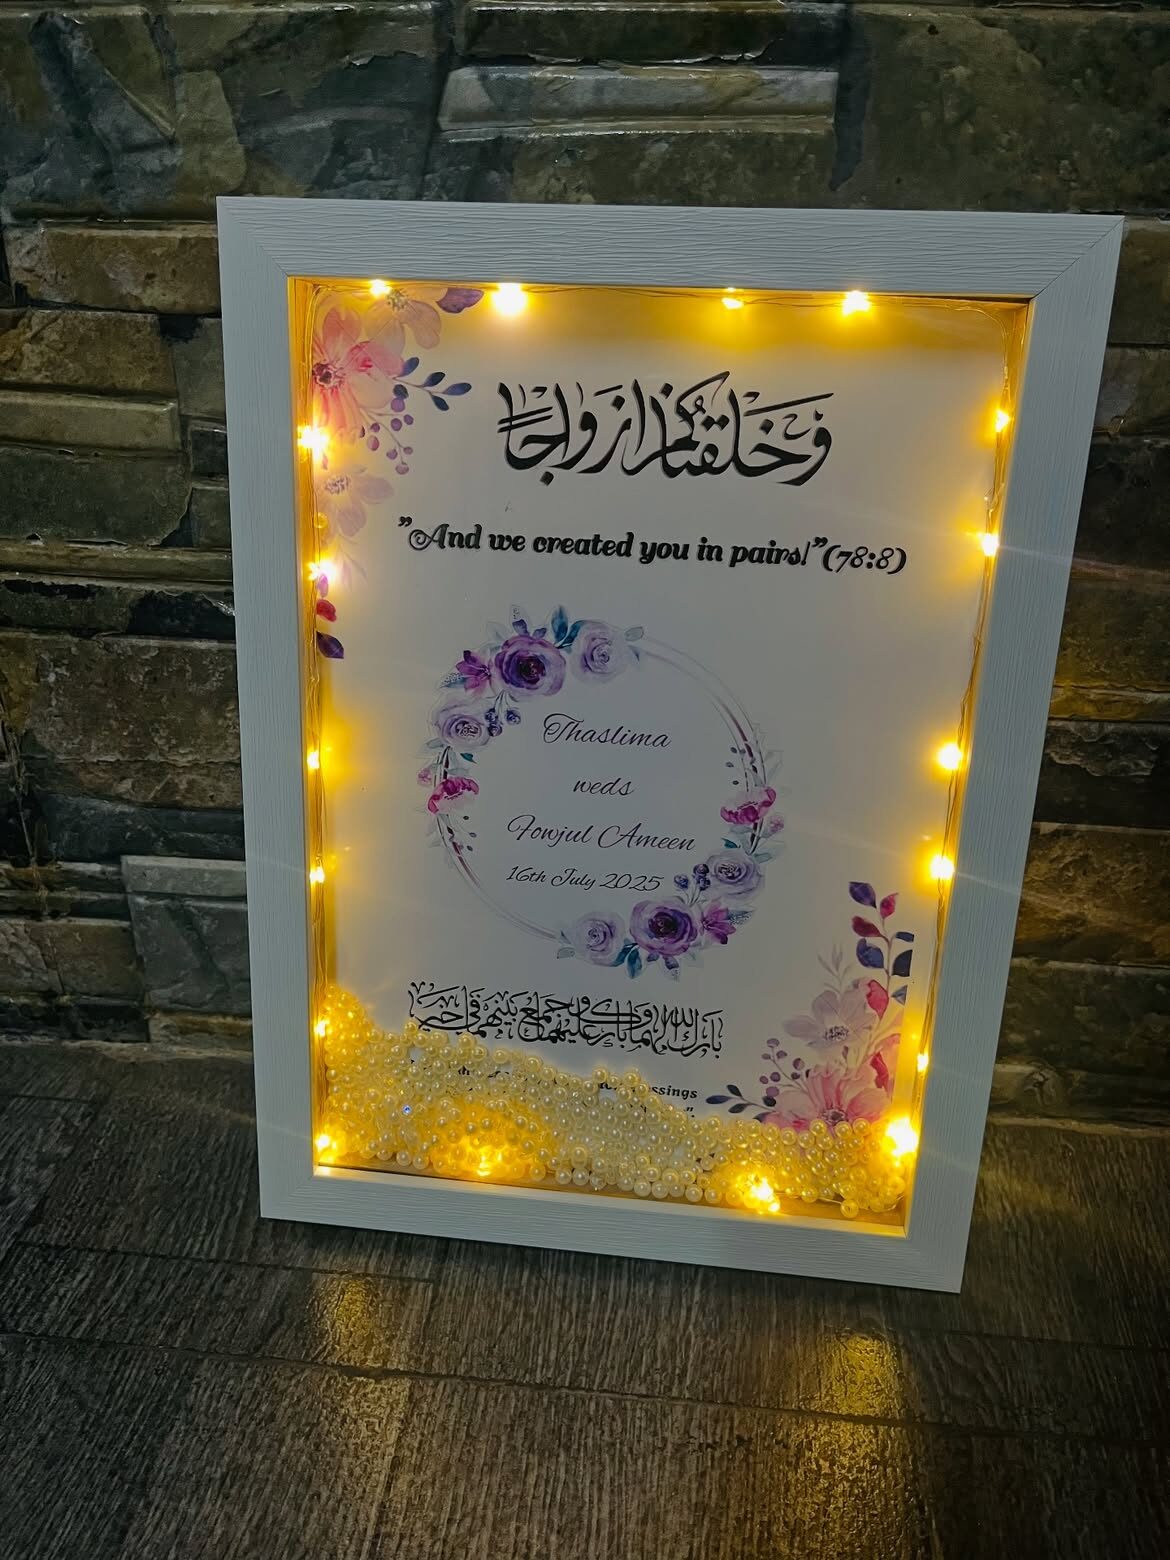 وَخَلَقْنَاكُمْ أَزْوَاجًا
"And we created you in pairs!" (78:8)
Thaslima
weds
Fowjul Ameen
16th July 2025
بارك الله لهما وبارك عليهما وجمع بينهما في خير
blessings